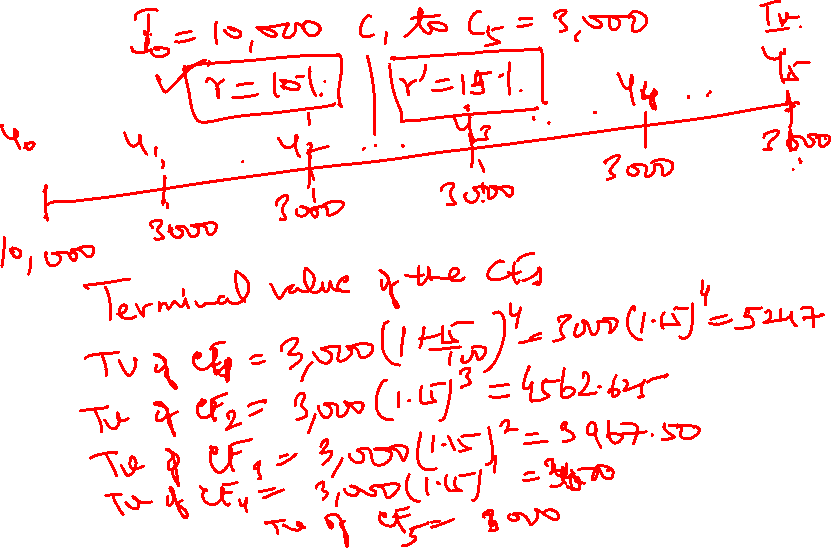 I₀ = 10,000 C₁ to C₅ = 3,000
Tv
r = 10%. r' = 15%.
Y₀ Y₁ Y₂ Y₃ Y₄ Y₅
10,000 3000 3000 3000 3000 3000
Terminal value of the CFs
TV of CF₁ = 3,000 (1+15/100)⁴ = 3000 (1.15)⁴ = 5247
Tv of CF₂ = 3,000 (1.15)³ = 4562.625
Tv of CF₃ = 3,000 (1.15)² = 3967.50
Tv of CF₄ = 3,000 (1.15)¹ =
Tv of CF₅ = 3000